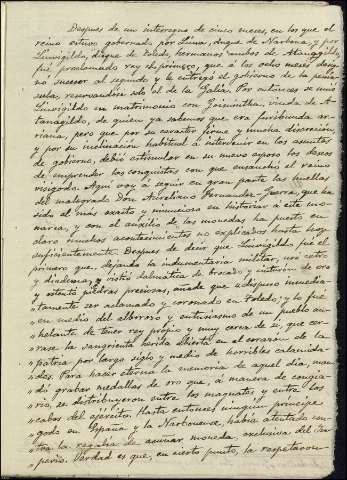 Despues de un interregno de cinco meses, en los que el
reino estuvo gobernado por Liuva, duque de Narbona, y por
Liuvigildo, duque de Toledo, hermanos ambos de Atanagildo,
fué proclamado rey el primero, que á los ocho meses designó
sucesor al segundo y le entregó el gobierno de la penín-
sula, reservándose solo el de la Galia. Por entonces se unió
Liuvigildo en matrimonio con Gosuintha, viuda de A-
tanagildo, de quien ya sabemos que era furibunda ar-
riana, pero que por su carácter firme y mucha discreción,
y por su inclinación habitual á intervenir en los asuntos
de gobierno, debió estimular en su nuevo esposo los deseos
de emprender las conquistas con que ensanchó el reino
visigodo. Aquí voy á seguir en gran parte las huellas
del malogrado Don Aureliano Fernandez-Guerra, que ha
sido el más exacto y minucioso en historiar á este mo-
narca, y con el auxilio de las monedas ha puesto en
claro muchos acontecimientos no explicados hasta hoy
suficientemente. Despues de decir que Liuvigildo fué el
primero que, dejando la indumentaria militar, usó cetro
y diadema, y vistió dalmática de brocado y cinturon de oro
y ostentó piedras preciosas, añade que "dispuso inmedia-
"tamente ser aclamado y coronado en Toledo; y lo fué
"en medio del alborozo y entusiasmo de un pueblo an-
"helante de tener rey propio y muy cerca de sí, que cer-
"rase la sangrienta herida abierta en el corazon de la
"patria por largo siglo y medio de horribles calamida-
"des. Para hacer eterna la memoria de aquel dia, man-
"dó grabar medallas de oro que, á manera de congia-
"rio, se distribuyeron entre los magnates y entre los
"cabos del ejército. Hasta entonces ningún príncipe
"godo en España y la Narbonense, había atentado con-
"tra la regalía de acuñar moneda, exclusiva del Im-
"perio. Verdad es que, en cierto punto, la respetaron